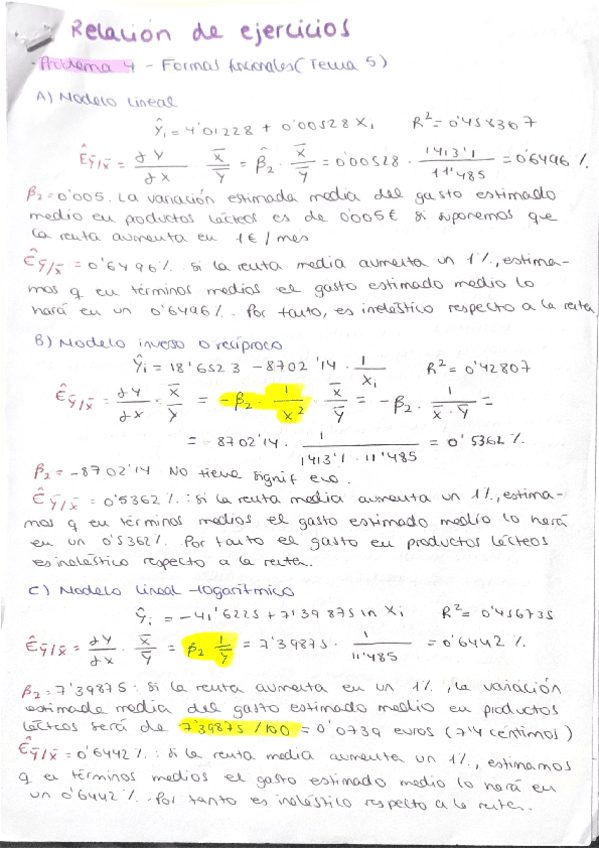 Relación de ejercicios
Problema 4 - Formas funcionales (Tema 5)
A) Modelo lineal
Ŷi = 4'01228 + 0'00528 Xi R² = 0'458367
Ê ȳ/x̄ = ∂Y/∂X · X̄/Ȳ = β̂2 · X̄/Ȳ = 0'00528 · 1413'1/11'485 = 0'6496 %
β2 = 0'005. La variación estimada media del gasto estimado
medio en productos lácteos es de 0'005€ si suponemos que
la renta aumenta en 1€/mes
Ê ȳ/x̄ = 0'6496 %. Si la renta media aumenta un 1%, estima-
mos q en términos medios el gasto estimado medio lo
hará en un 0'6496%. Por tanto, es inelástico respecto a la renta
B) Modelo inverso o recíproco
Ŷi = 18'6523 - 8702'14 · 1/Xi R² = 0'42807
Ê ȳ/x̄ = ∂Y/∂X · X̄/Ȳ = -β2 · 1/X² · X̄/Ȳ = -β2 · 1/X̄·Ȳ =
= -8702'14 · 1/1413'1 · 11'485 = 0'5362 %
β2 = -8702'14 No tiene signif eco.
Ê ȳ/x̄ = 0'5362 %: Si la renta media aumenta un 1%, estima-
mos q en términos medios el gasto estimado medio lo hará
en un 0'5362%. Por tanto el gasto en productos lácteos
es inelástico respecto a la renta.
C) Modelo lineal-logarítmico
Ŷi = -41'6225 + 7'39875 ln Xi R² = 0'456735
Ê ȳ/x̄ = ∂Y/∂X · X̄/Ȳ = β2 1/Ȳ = 7'39875 · 1/11'485 = 0'6442 %
β2 = 7'39875: Si la renta aumenta en un 1%, la variación
estimada media del gasto estimado medio en productos
lácteos será de 7'39875/100 = 0'0739 euros (7'4 céntimos)
Ê ȳ/x̄ = 0'6442 %: si la renta media aumenta un 1%, estimamos
q en términos medios el gasto estimado medio lo hará en
un 0'6442 %. Por tanto es inelástico respecto a la renta.